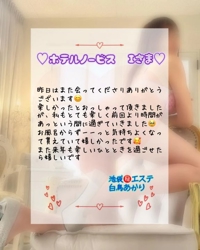 ♡ホテルノービス Iさま♡
昨日はまた会ってくださりありがとうございます😊
楽しかったとおっしゃって頂きましたが、私もとても楽しく前回より時間があっという間に過ぎていきました🥹
お風呂からずーーっと気持ちよくなって貰えていて嬉しかったです🥰
また来年も楽しいひとときを過ごせたら嬉しいです
池袋㊙️エステ
白鳥あかり